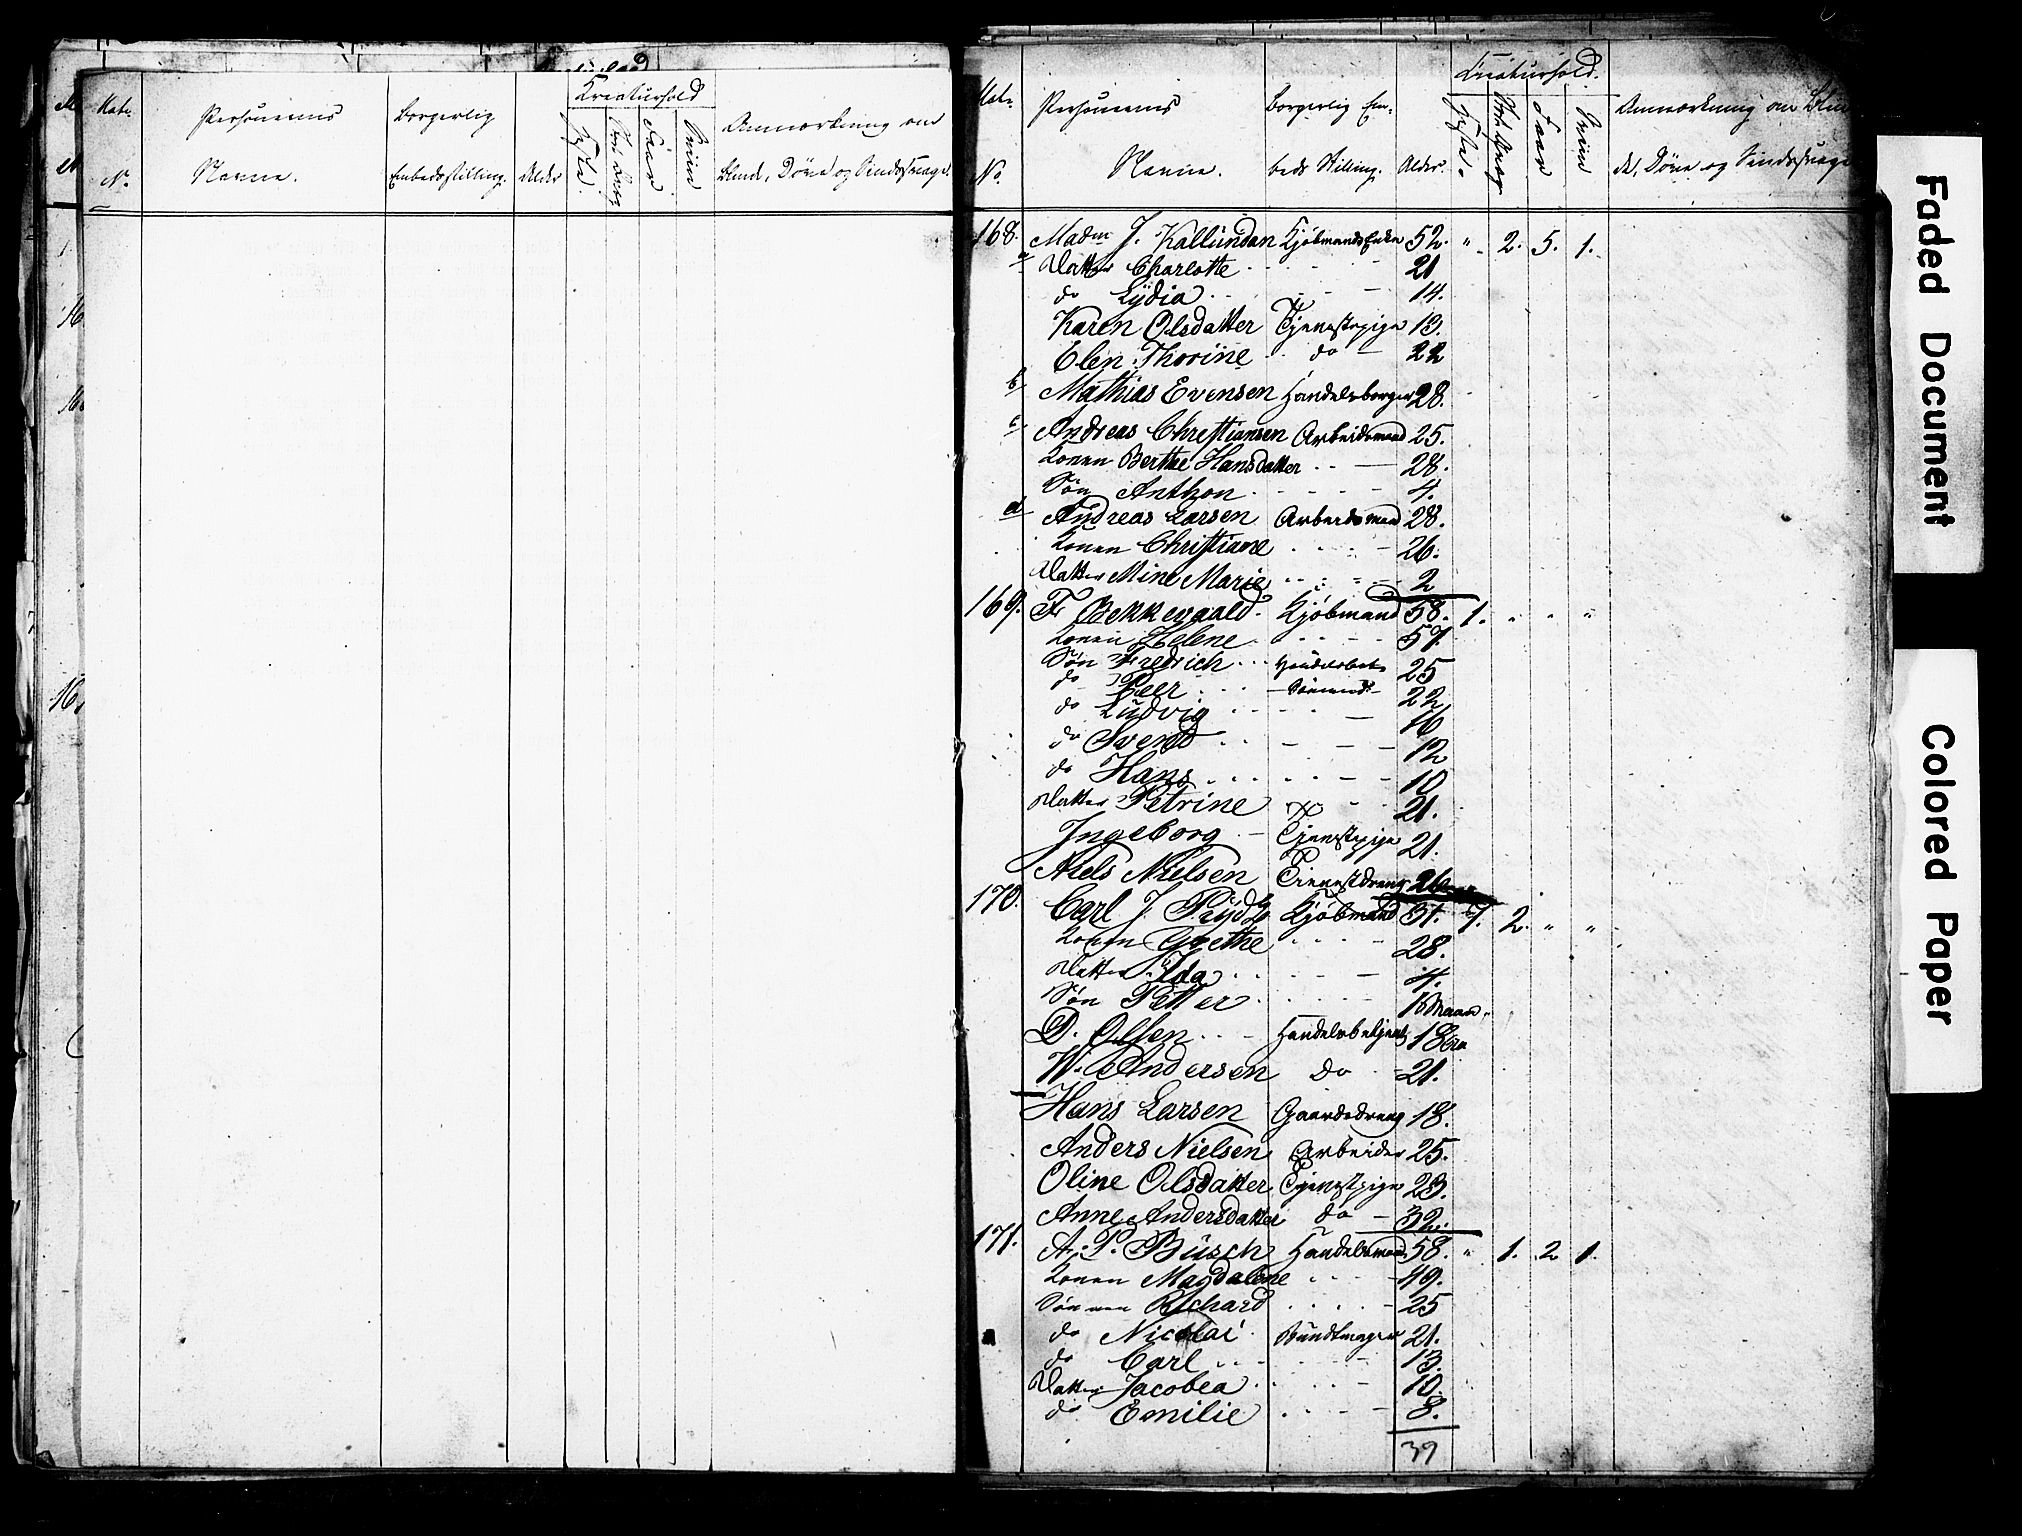 Matr. No. Personernes Navne. Borgerlig Embedsstilling. Alder Kreaturhold Heste. Stort Qvæg Faar Sviin Anmærkning om Blinde, Døve og Sindssvage.
Matr. No. Personernes Navne. Borgerlig Em- beds Stilling. Alder. Kreaturhold. Heste. Stort Qvæg Faar Sviin Anmærkning om Blin- de, Døve og Sindssvage
168. Madm J. Kallundan Kjøbmands Enke 52. " 2. 5. 1.
a Datter Charlotte 21
do Lydia 14.
Karen Olsdatter Tjenestepige 13.
Elen Thorine do 22
b Mathias Evensen Handelsborger 28.
c Andreas Christiansen Arbeidsmand 25.
Konen Berthe Hansdatter 28.
Søn Anthon 4.
d Andreas Larsen Arbeidsmand 28.
Konen Christiane 26.
Datter Mine Marie 2
169. F Bekkevaold Kjøbmand 58. 1. " " "
Konen Helene 57.
Søn Fredrich 25
do Peer Sømand 22
do Ludvig 16
do Svend 12
do Hans 10
Datter Petrine 21.
Ingeborg Tjenestepige 21.
Niels Nielsen Tienestdreng 26
170. Carl J. Prydz Kjøbmand 31. 1. 2. " "
Konen Grethe 28.
Datter Ida 4.
Søn Petter Maan.
D. Olsen Handelsbetjent 18
W. Andersen do 21.
Hans Larsen Gaardsdreng 18.
Anders Nielsen Arbeider 25.
Oline Olsdatter Tjenestpige 23.
Anne Andersdatter do 32.
171. A. P. Büsch Handelsmand 58. " 1. 2 1.
Konen Magdalene 49.
Sønnen Richard 25
do Nicolai Bundtmager 21.
do Carl 13.
Datter Jacobea 10.
do Emilie 8.
39
Faded Document
Colored Paper